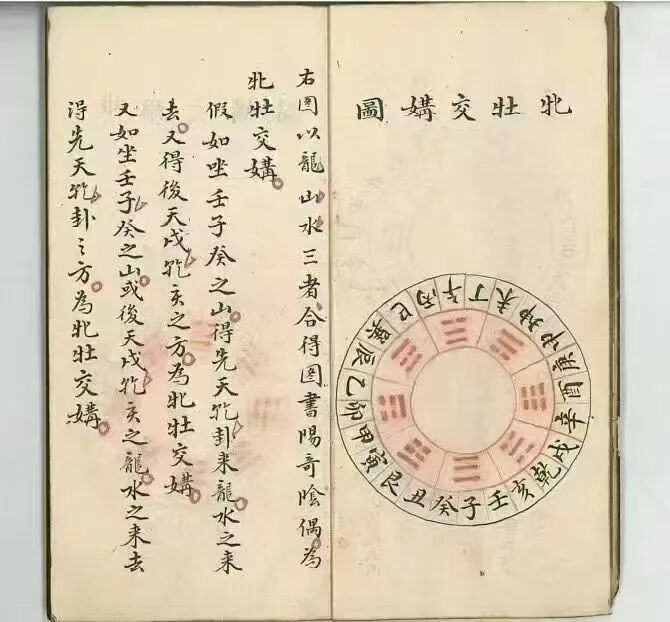 牝牡交媾圖
壬子癸丑艮寅甲卯乙辰巽巳丙午丁未坤申庚酉辛戌乾亥
右图以龍山水三者合得图書陽奇陰偶為
牝牡交媾
假如坐壬子癸之山得先天乾卦来龍水之来
去又得後天戌乾亥之方為牝牡交媾
又如坐壬子癸之山或後天戌乾亥之龍水之来去
得先天乾卦之方為牝牡交媾